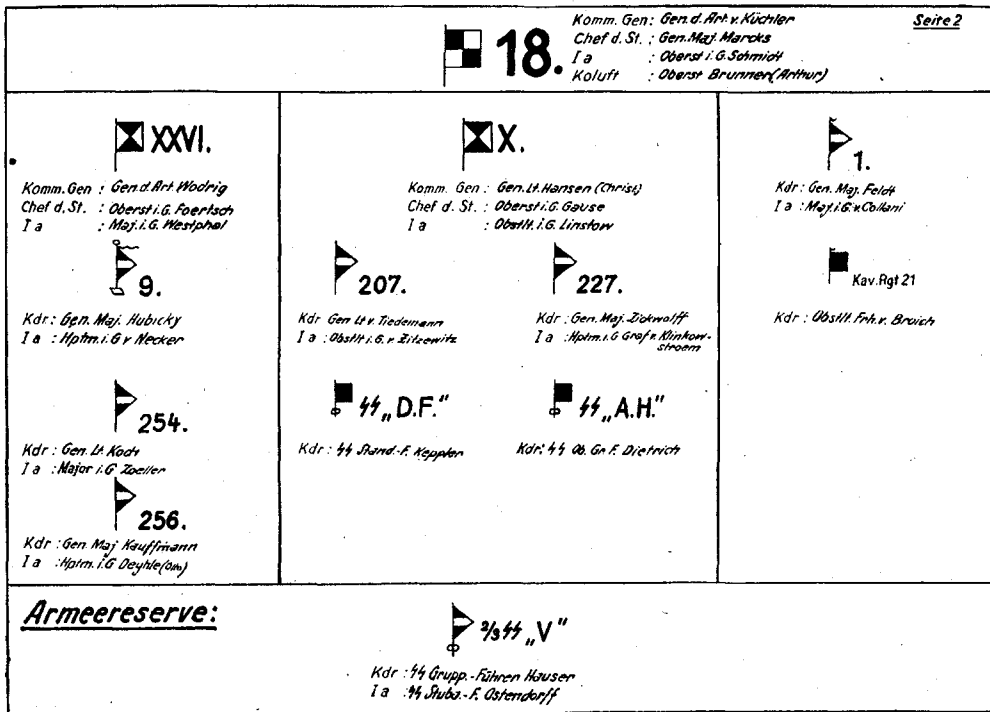 Seite 2
18.
Komm. Gen: Gen. d. Art. v. Küchler
Chef d. St. : Gen. Maj. Marcks
I a : Oberst i. G. Schmidt
Koluft : Oberst Brunner (Arthur)
XXVI.
Komm. Gen : Gen. d. Art. Wodrig
Chef d. St. : Oberst i. G. Foertsch
I a : Maj. i. G. Westphal
9.
Kdr : Gen. Maj. Hubicky
I a : Hptm. i. G v Necker
254.
Kdr : Gen. Lt. Koch
I a : Major i. G Zoeller
256.
Kdr : Gen. Maj Kauffmann
I a : Hptm. i. G Deyhle (Otto)
X.
Komm. Gen : Gen. Lt. Hansen (Christ)
Chef d. St. : Oberst i. G. Gause
I a : Obstlt. i. G. Linstow
207.
Kdr Gen Lt v. Tiedemann
I a : Obstlt i. G. v. Zitzewitz
227.
Kdr : Gen. Maj. Zickwolff
I a : Hptm. i. G Graf v. Klinkow-
stroem
SS „D.F."
Kdr : SS Stand.-F. Keppler
SS „A.H."
Kdr: SS Ob. Gr F. Dietrich
1.
Kdr : Gen. Maj. Feldt
I a : Maj. i. G. v. Collani
Kav. Rgt 21
Kdr : Obstlt. Frh. v. Broich
Armeereserve:
⅔ SS „V"
Kdr : SS Grupp.-Führer Hauser
I a : SS Stuba.-F. Ostendorff